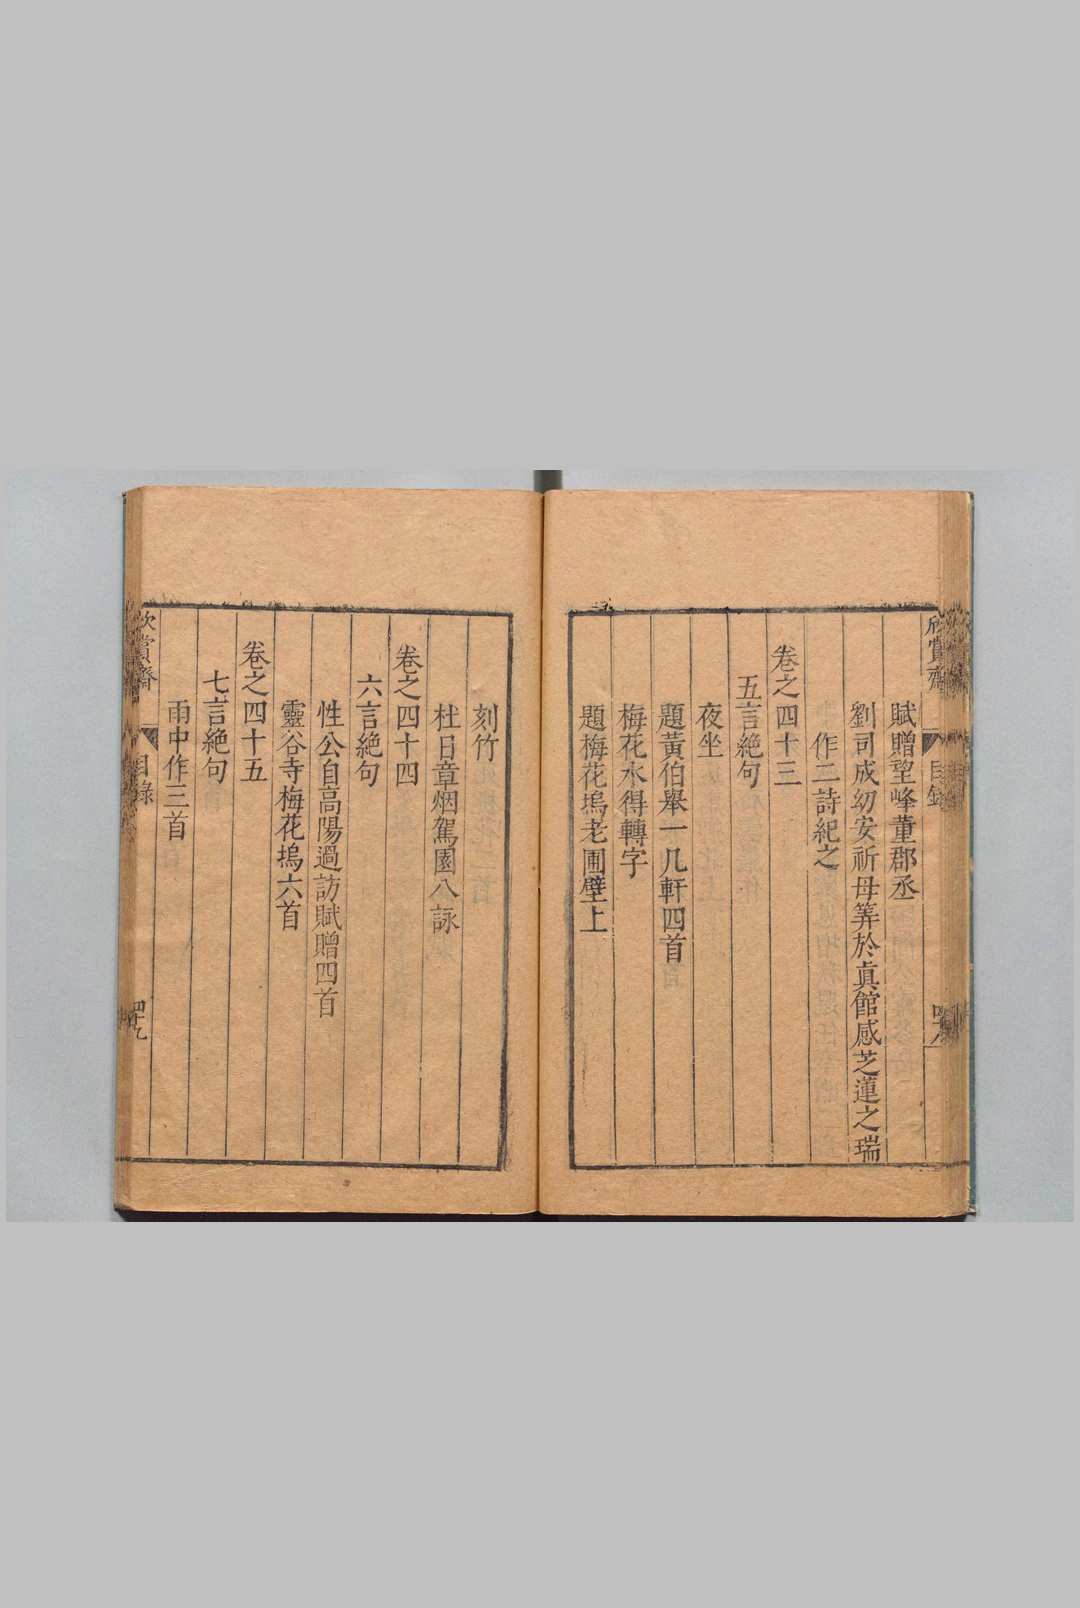 欣賞齋
目錄
四十八
賦贈望峰董郡丞
劉司成幼安祈母筭於真館感芝蓮之瑞
作二詩紀之
卷之四十三
五言絶句
夜坐
題黃伯舉一几軒四首
梅花水得轉字
題梅花塢老圃壁上
刻竹
杜日章烟駕園八詠
卷之四十四
六言絶句
性公自高陽過訪賦贈四首
靈谷寺梅花塢六首
卷之四十五
七言絶句
雨中作三首
欣賞齋
目錄
四十九